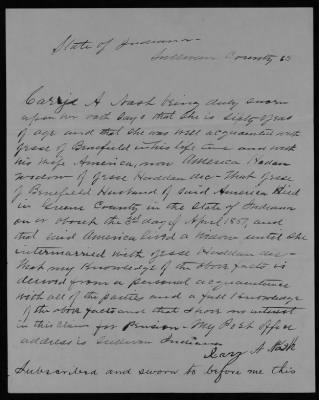 State of Indiana
Sullivan County ss
Carrie A Nash being duly sworn
upon her oath says that she is sixty years
of age and that she was well acquainted with
Jesse Benefield in his life time and with
his wife America, now America Haddan
widow of Jesse Haddan dec - That Jesse
Benefield Husband of said America Died
in Greene County in the State of Indiana
on or about the 3d day of April 1857, and
that said America lived a widow until she
intermarried with Jesse Haddan dec -
That my Knowledge of the above facts is
derived from a personal acquaintance
with all of the parties and a full Knowledge
of the above facts and that I have no interest
in this claim for Pension - My Post office
address is Sullivan Indiana
A Nash
Subscribed and sworn to before me this